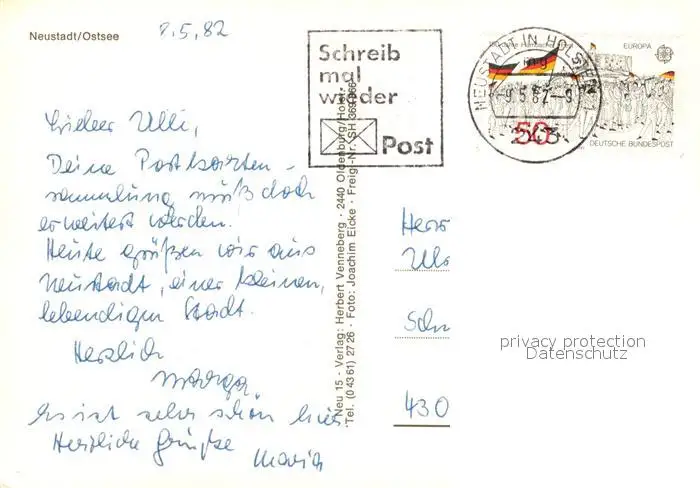 Neustadt/Ostsee
8.5.82
Schreib
mal
wieder
Post
NEUSTADT IN HOLST
mg
-9.5.82-9
2430
50
EUROPA
DEUTSCHE BUNDESPOST
Lieber Ulli,
Deine Postkarten-
sammlung muß doch
erweitert werden.
Heute grüßen wir aus
Neustadt, einer kleinen,
lebendigen Stadt.
Herzlich
Marga
Es ist sehr schön hier
Herzliche Grüße
Maria
Neu 15 - Verlag: Herbert Venneberg · 2440 Oldenburg/Holst.
Tel. (0 43 61) 27 26 · Foto: Joachim Eicke · Freig.-Nr. SH 369
Herr
Ulr
Schr
430
privacy protection
Datenschutz